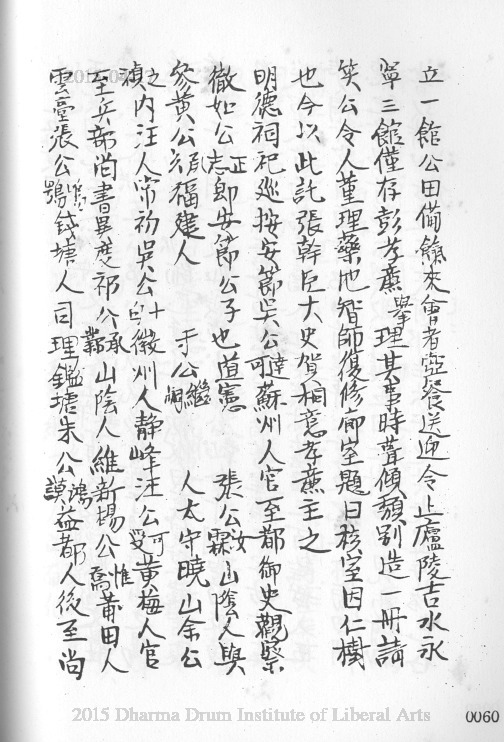 立一館公田備餼來會者盌餐送迎今止廬陵吉水永
寧三館僅存彭孝廉舉理其事時葺傾頹別造一冊請
笑公令人董理藥地智師復修廊室題曰核室因仁樹
也今以此託張幹臣大史賀桐意孝廉主之
明德祠祀巡按安節吳公達可蘇州人官至都御史觀察
徹如公正志即安節公子也道憲 張公汝霖山陰人與
參黃公承福建人 于公繼 人太守曉山余公
之禎內江人常初吳公士 徽州人靜峰汪公可受黃梅人官
至兵部尚書異度祁公承 山陰人維新楊公惟喬莆田人
雲臺張公 錢塘人司理鑑塘朱公鴻謨益都人後至尚
2015 Dharma Drum Institute of Liberal Arts
0060